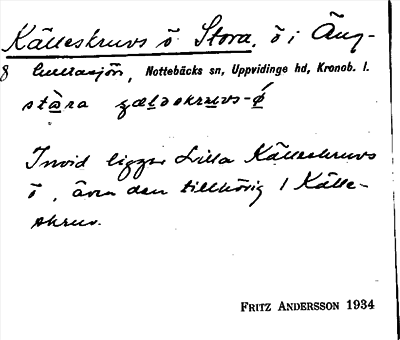 Källeskruvs ö. Stora, ö i Äng-
sjön, Nottebäcks sn, Uppvidinge hd, Kronob. l.
stᴐra
Invid ligger Lilla Källeskruvs
ö, även den tillhörig 1 Källe-
skruv.
FRITZ ANDERSSON 1934